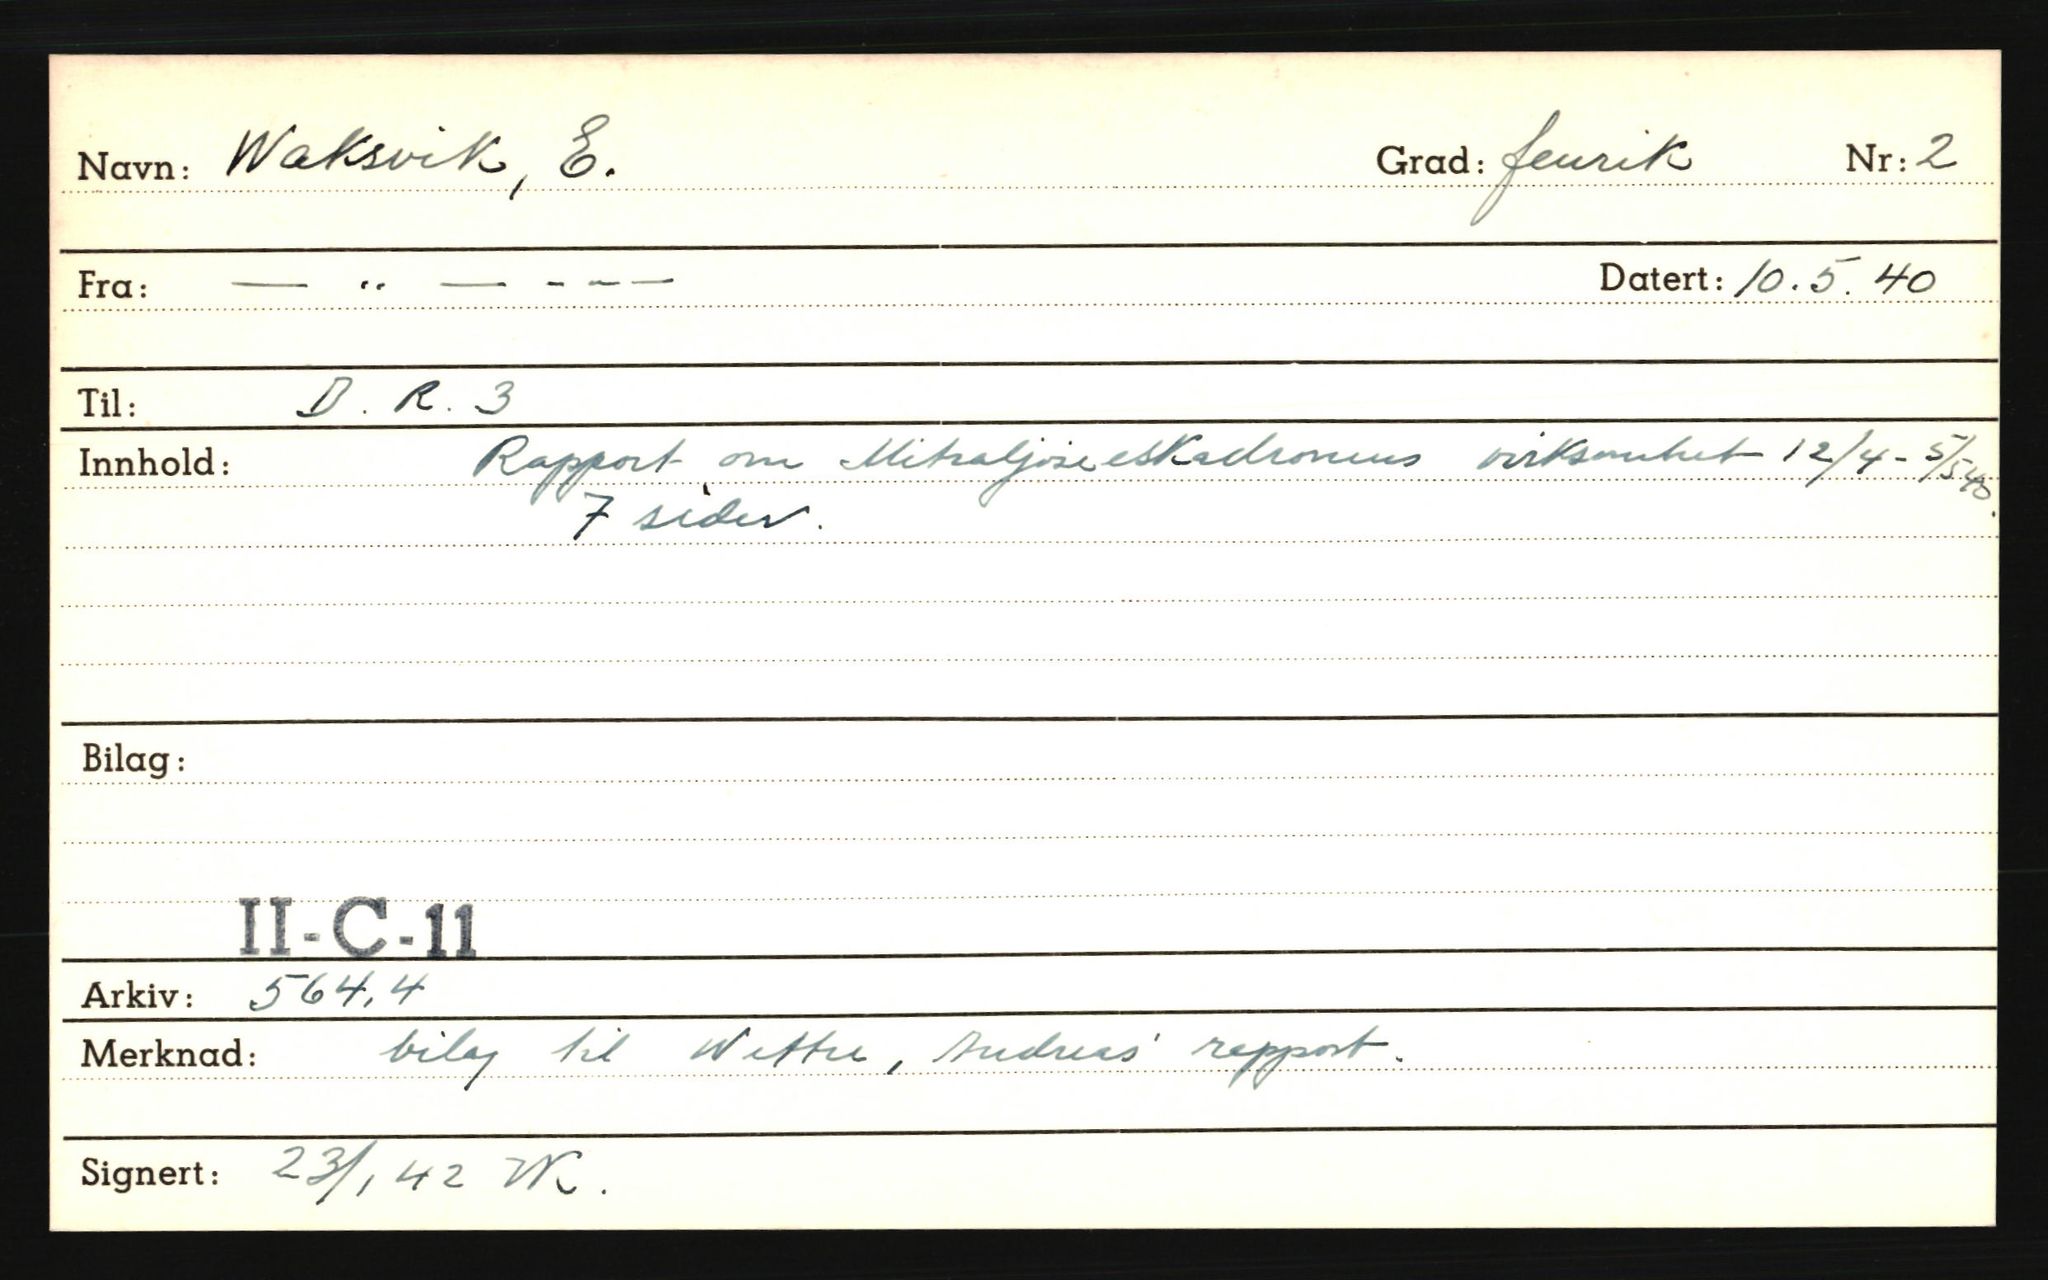 Navn: Waksvik, E. Grad: fenrik Nr: 2
Fra: — " — - - — Datert: 10.5.40
Til: D.R.3
Innhold: Rapport om Mitraljöseeskadronens virksomhet 12/4 - 5/5 40.
7 sider.
Bilag:
II-C-11
Arkiv: 564,4
Merknad: bilag til Wettre, Andreas' rapport.
Signert: 23/1 42 WK.